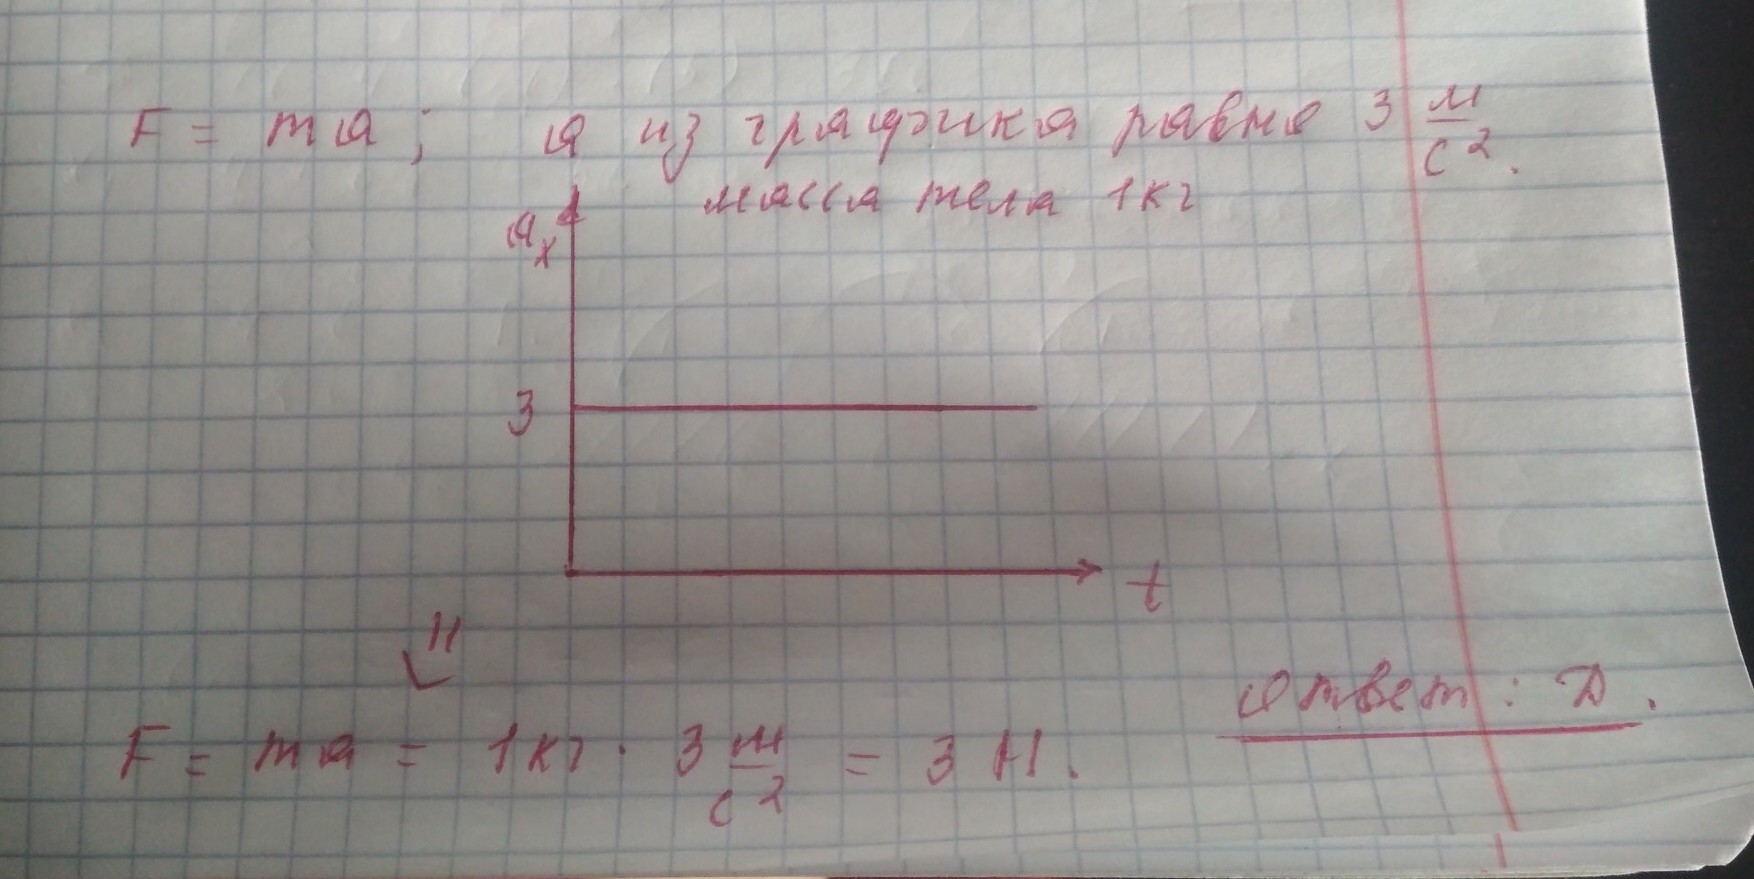 F = ma; а из графика равно 3 м/с².
масса тела 1кг
aₓ
3
t
И
F = ma = 1кг · 3 м/с² = 3 Н.
Ответ: Д.